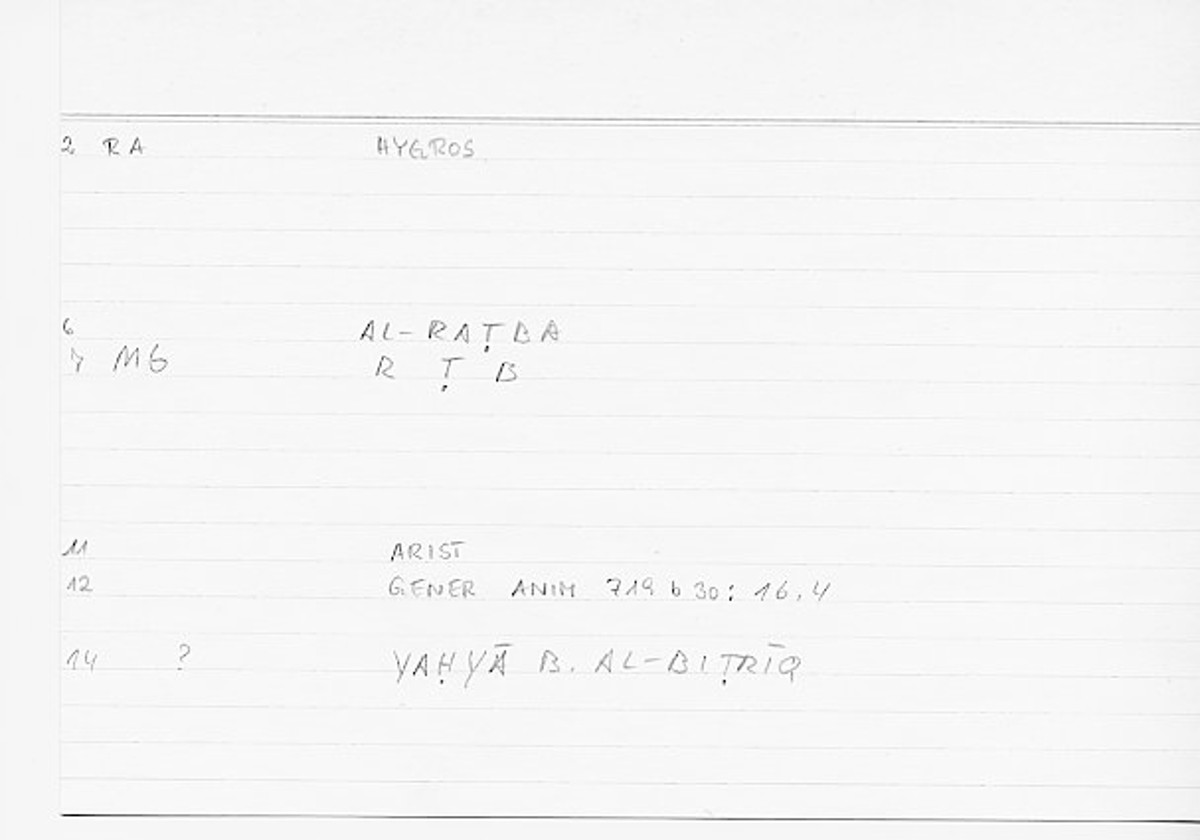 2 RA HYGROS
6 AL-RAṬBA
7 MG R Ṭ B
11 ARIST
12 GENER ANIM 719 b 30: 16,4
14 ? YAḤYĀ B. AL-BIṬRĪQ